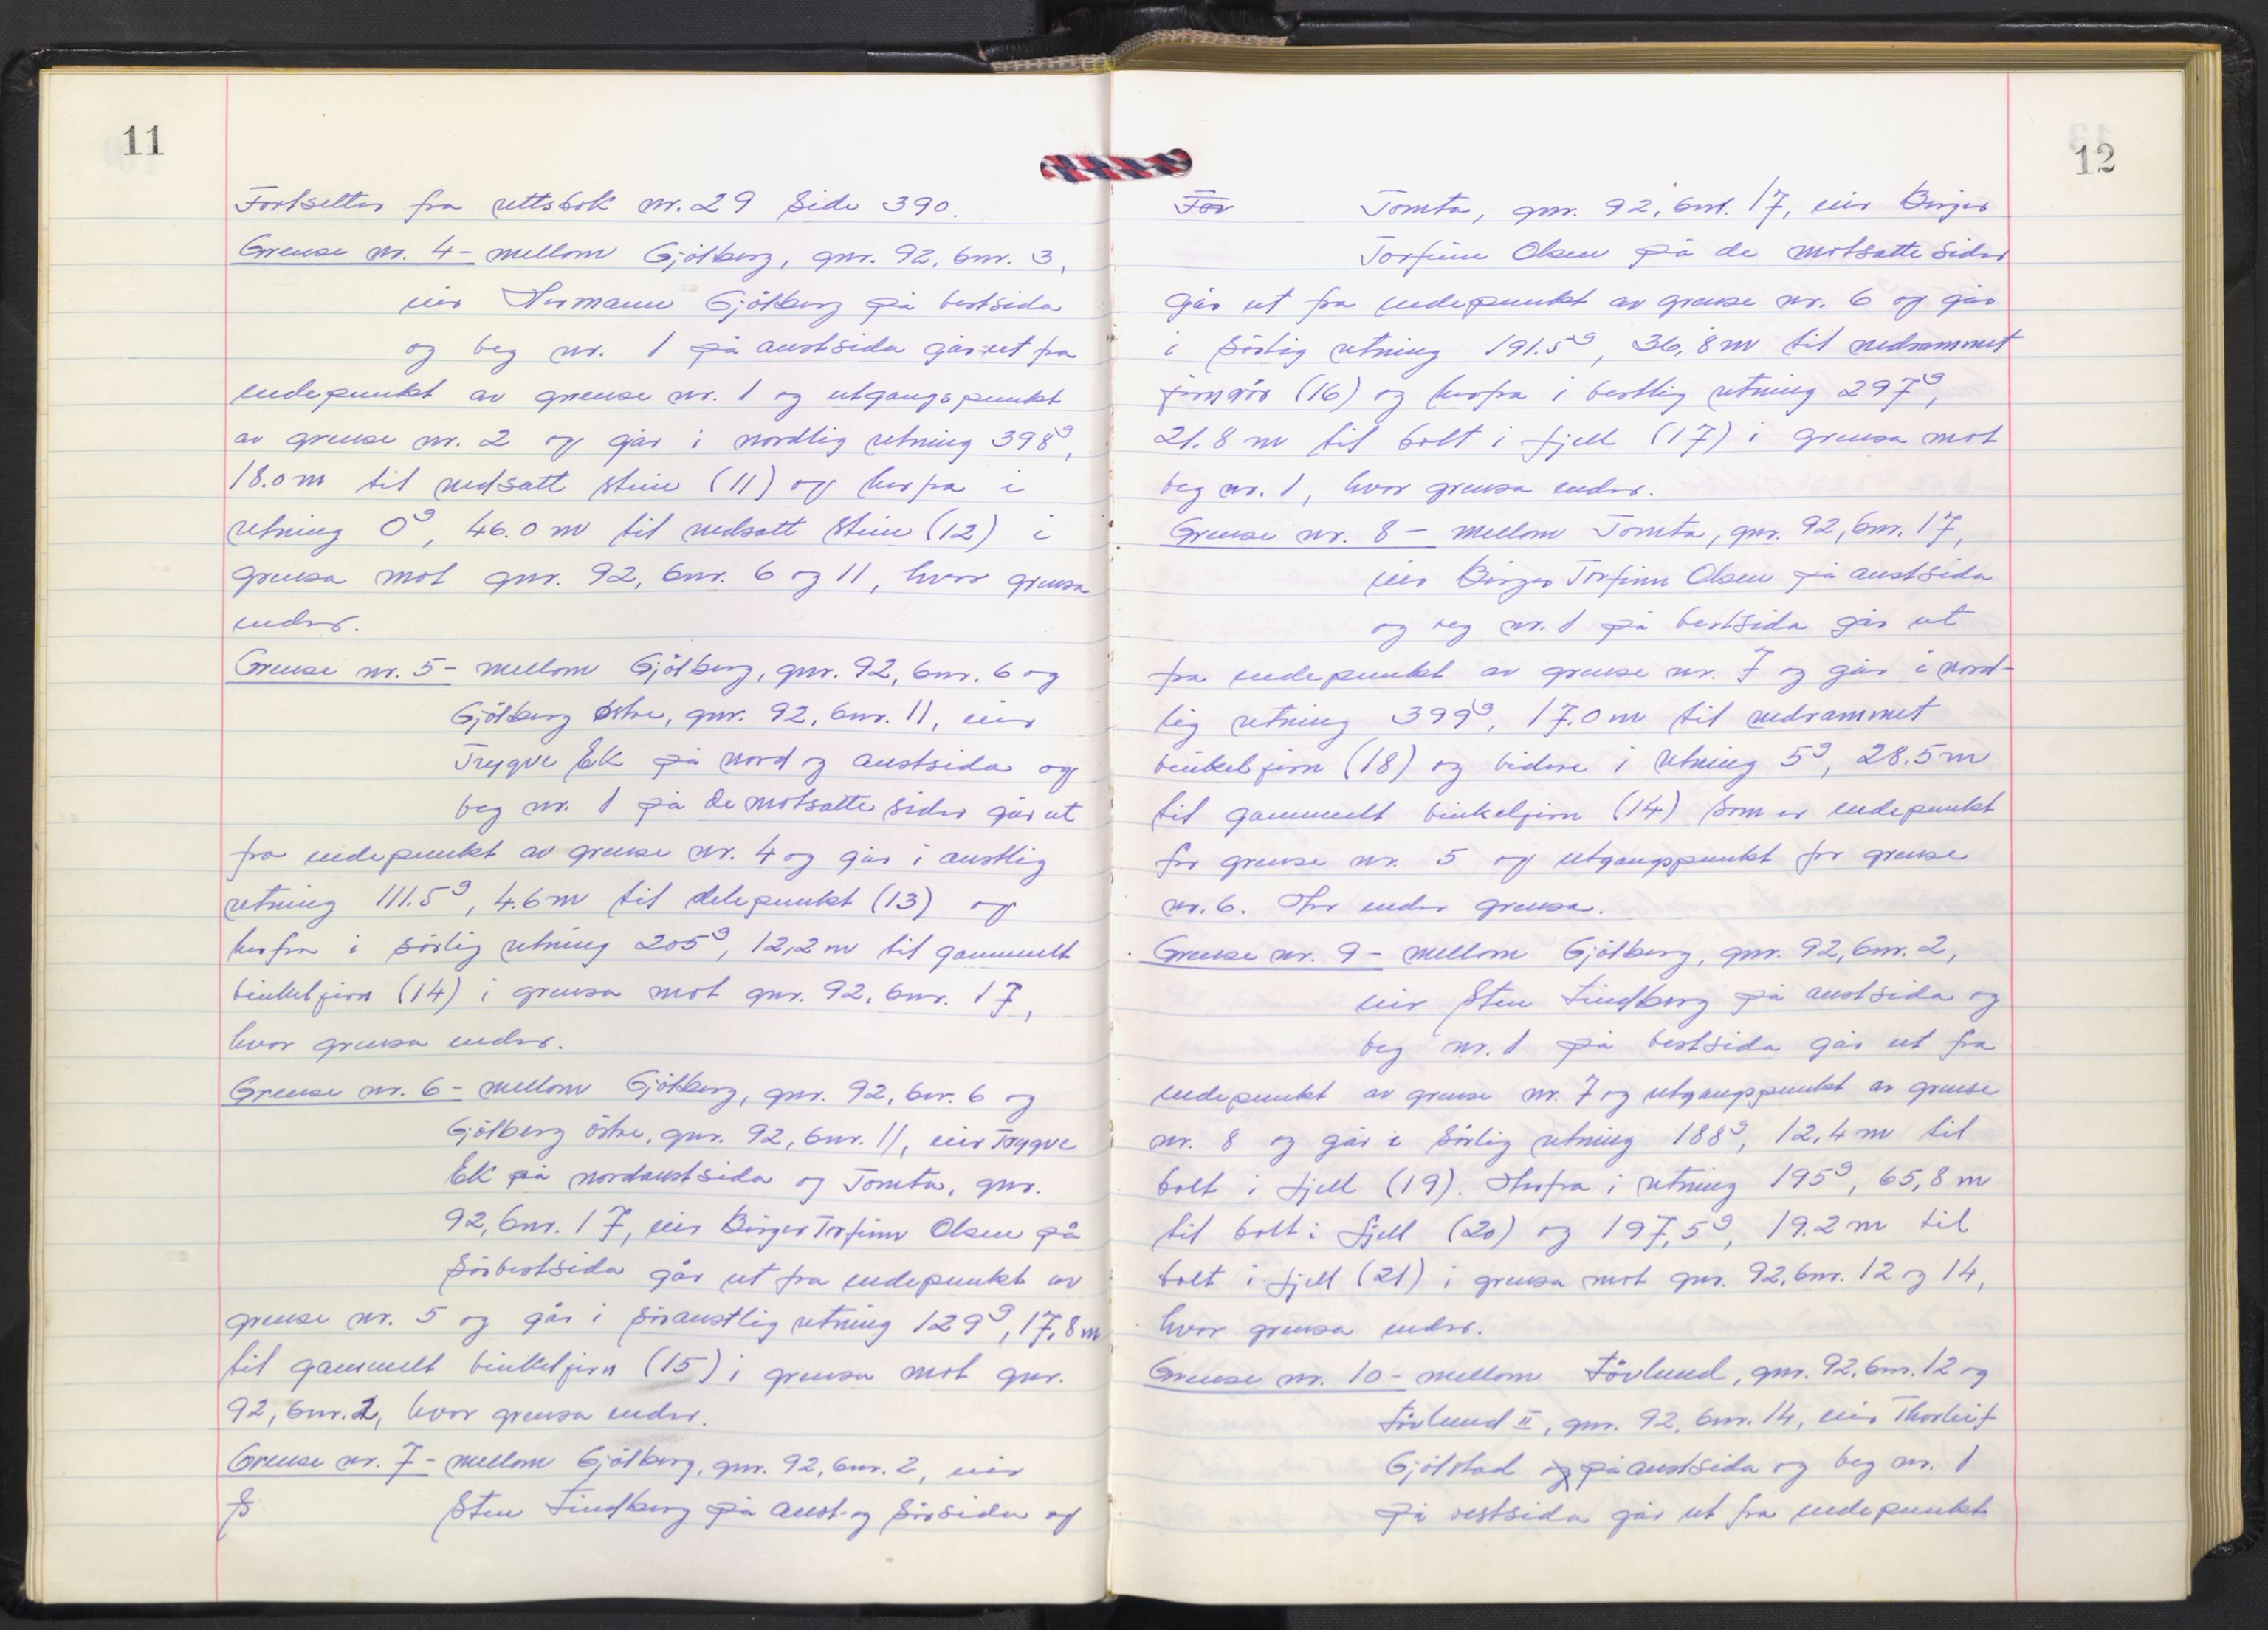 11
Fortsettes fra rettsbok nr. 29 side 390.
Grense nr. 4 - mellom Gjölberg, gnr. 92, bnr. 3,
eier Hermann Gjölberg på vestsida
og veg nr. 1 på austsida går ut fra
endepunkt av grense nr. 1 og utgangspunkt
av grense nr. 2 og går i nordlig retning 398g,
18.0 m til nedsatt stein (11) og herfra i
retning 0g, 46.0 m til nedsatt stein (12) i
grensa mot gnr. 92, bnr. 6 og 11, hvor grensa
ender.
Grense nr. 5 - mellom Gjölberg, gnr. 92, bnr. 6 og
Gjölberg östre, gnr. 92, bnr. 11, eier
Trygve Ek på nord og austsida og
veg nr. 1 på de motsatte sider går ut
fra endepunkt av grense nr. 4 og går i austlig
retning 111.5g, 4.6 m til delepunkt (13) og
herfra i sörlig retning 205g, 12,2 m til gammelt
vinkeljern (14) i grensa mot gnr. 92, bnr. 17,
hvor grensa ender.
Grense nr. 6 - mellom Gjölberg, gnr. 92, bnr. 6 og
Gjölberg östre, gnr. 92, bnr. 11, eier Trygve
Ek på nordaustsida og Tomta, gnr.
92, bnr. 17, eier Birger Torfinn Olsen på
sörvestsida går ut fra endepunkt av
grense nr. 5 og går i söraustlig retning 129g, 17,8 m
til gammelt vinkeljern (15) i grensa mot gnr.
92, bnr. 2, hvor grensa ender.
Grense nr. 7 - mellom Gjölberg, gnr. 92, bnr. 2, eier
Sten Lindberg på aust- og sörsida og
12
For Tomta, gnr. 92, bnr. 17, eier Birger
Torfinn Olsen på de motsatte sider
går ut fra endepunkt av grense nr. 6 og går
i sörlig retning 191.5g, 36,8 m til nedrammet
jernrör (16) og herfra i vestlig retning 297g,
21.8 m til bolt i fjell (17) i grensa mot
veg nr. 1, hvor grensa ender.
Grense nr. 8 - mellom Tomta, gnr. 92, bnr. 17,
eier Birger Torfinn Olsen på austsida
og veg nr. 1 på vestsida går ut
fra endepunkt av grense nr. 7 og går i nord-
lig retning 399g, 17.0 m til nedrammet
vinkeljern (18) og videre i retning 5g, 28.5 m
til gammelt vinkeljern (14) som er endepunkt
for grense nr. 5 og utgangspunkt for grense
nr. 6. Her ender grensa.
Grense nr. 9 - mellom Gjölberg, gnr. 92, bnr. 2,
eier Sten Lindberg på austsida og
veg nr. 1 på vestsida går ut fra
endepunkt av grense nr. 7 og utgangspunkt av grense
nr. 8 og går i sörlig retning 188g, 12,4 m til
bolt i fjell (19). Herfra i retning 195g, 65,8 m
til bolt i fjell (20) og 197,5g, 19.2 m til
bolt i fjell (21) i grensa mot gnr. 92, bnr. 12 og 14,
hvor grensa ender.
Grense nr. 10 - mellom Lövlund, gnr. 92, bnr. 12 og
Lövlund II, gnr. 92, bnr. 14, eier Thorleif
Gjölstad og på austsida og veg nr. 1
på vestsida går ut fra endepunkt